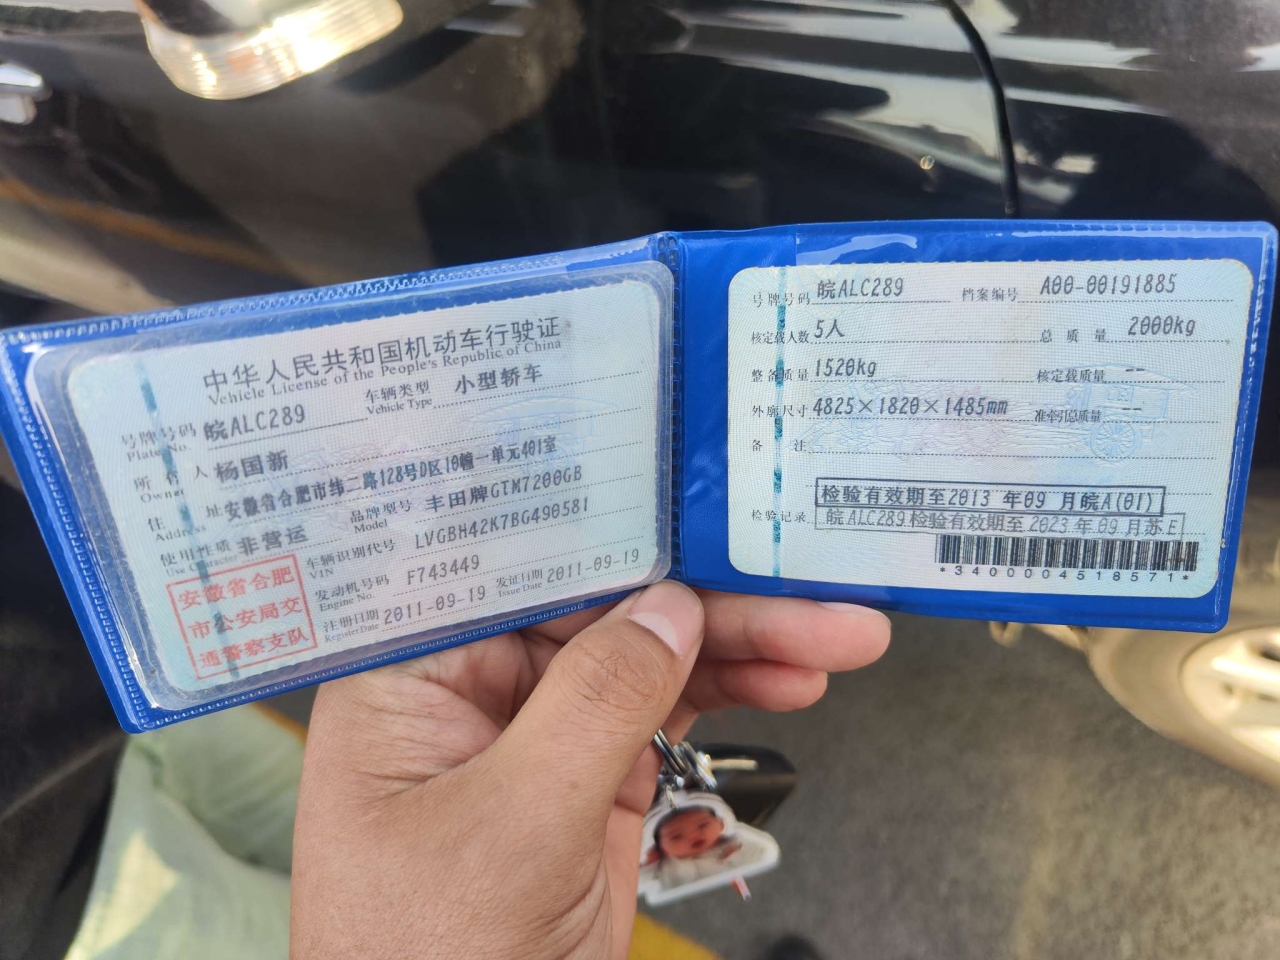 中华人民共和国机动车行驶证
Vehicle License of the People's Republic of China
号牌号码 皖ALC289 车辆类型 小型轿车
Plate No. Vehicle Type
所有人 杨国新
Owner
住址 安徽省合肥市纬二路128号D区10幢一单元401室
Address
使用性质 非营运 品牌型号 丰田牌GTM7200GB
Use Character Model
车辆识别代号 LVGBH42K7BG490581
VIN
发动机号码 F743449
Engine No.
注册日期 2011-09-19 发证日期 2011-09-19
Register Date Issue Date
安徽省合肥
市公安局交
通警察支队
号牌号码 皖ALC289 档案编号 A00-00191885
核定载人数 5人 总质量 2000kg
整备质量 1520kg 核定载质量 --
外廓尺寸 4825×1820×1485mm 准牵引总质量 --
备注
检验有效期至2013年09月皖A(01)
检验记录 皖ALC289检验有效期至2023年09月苏E
*3400004518571*